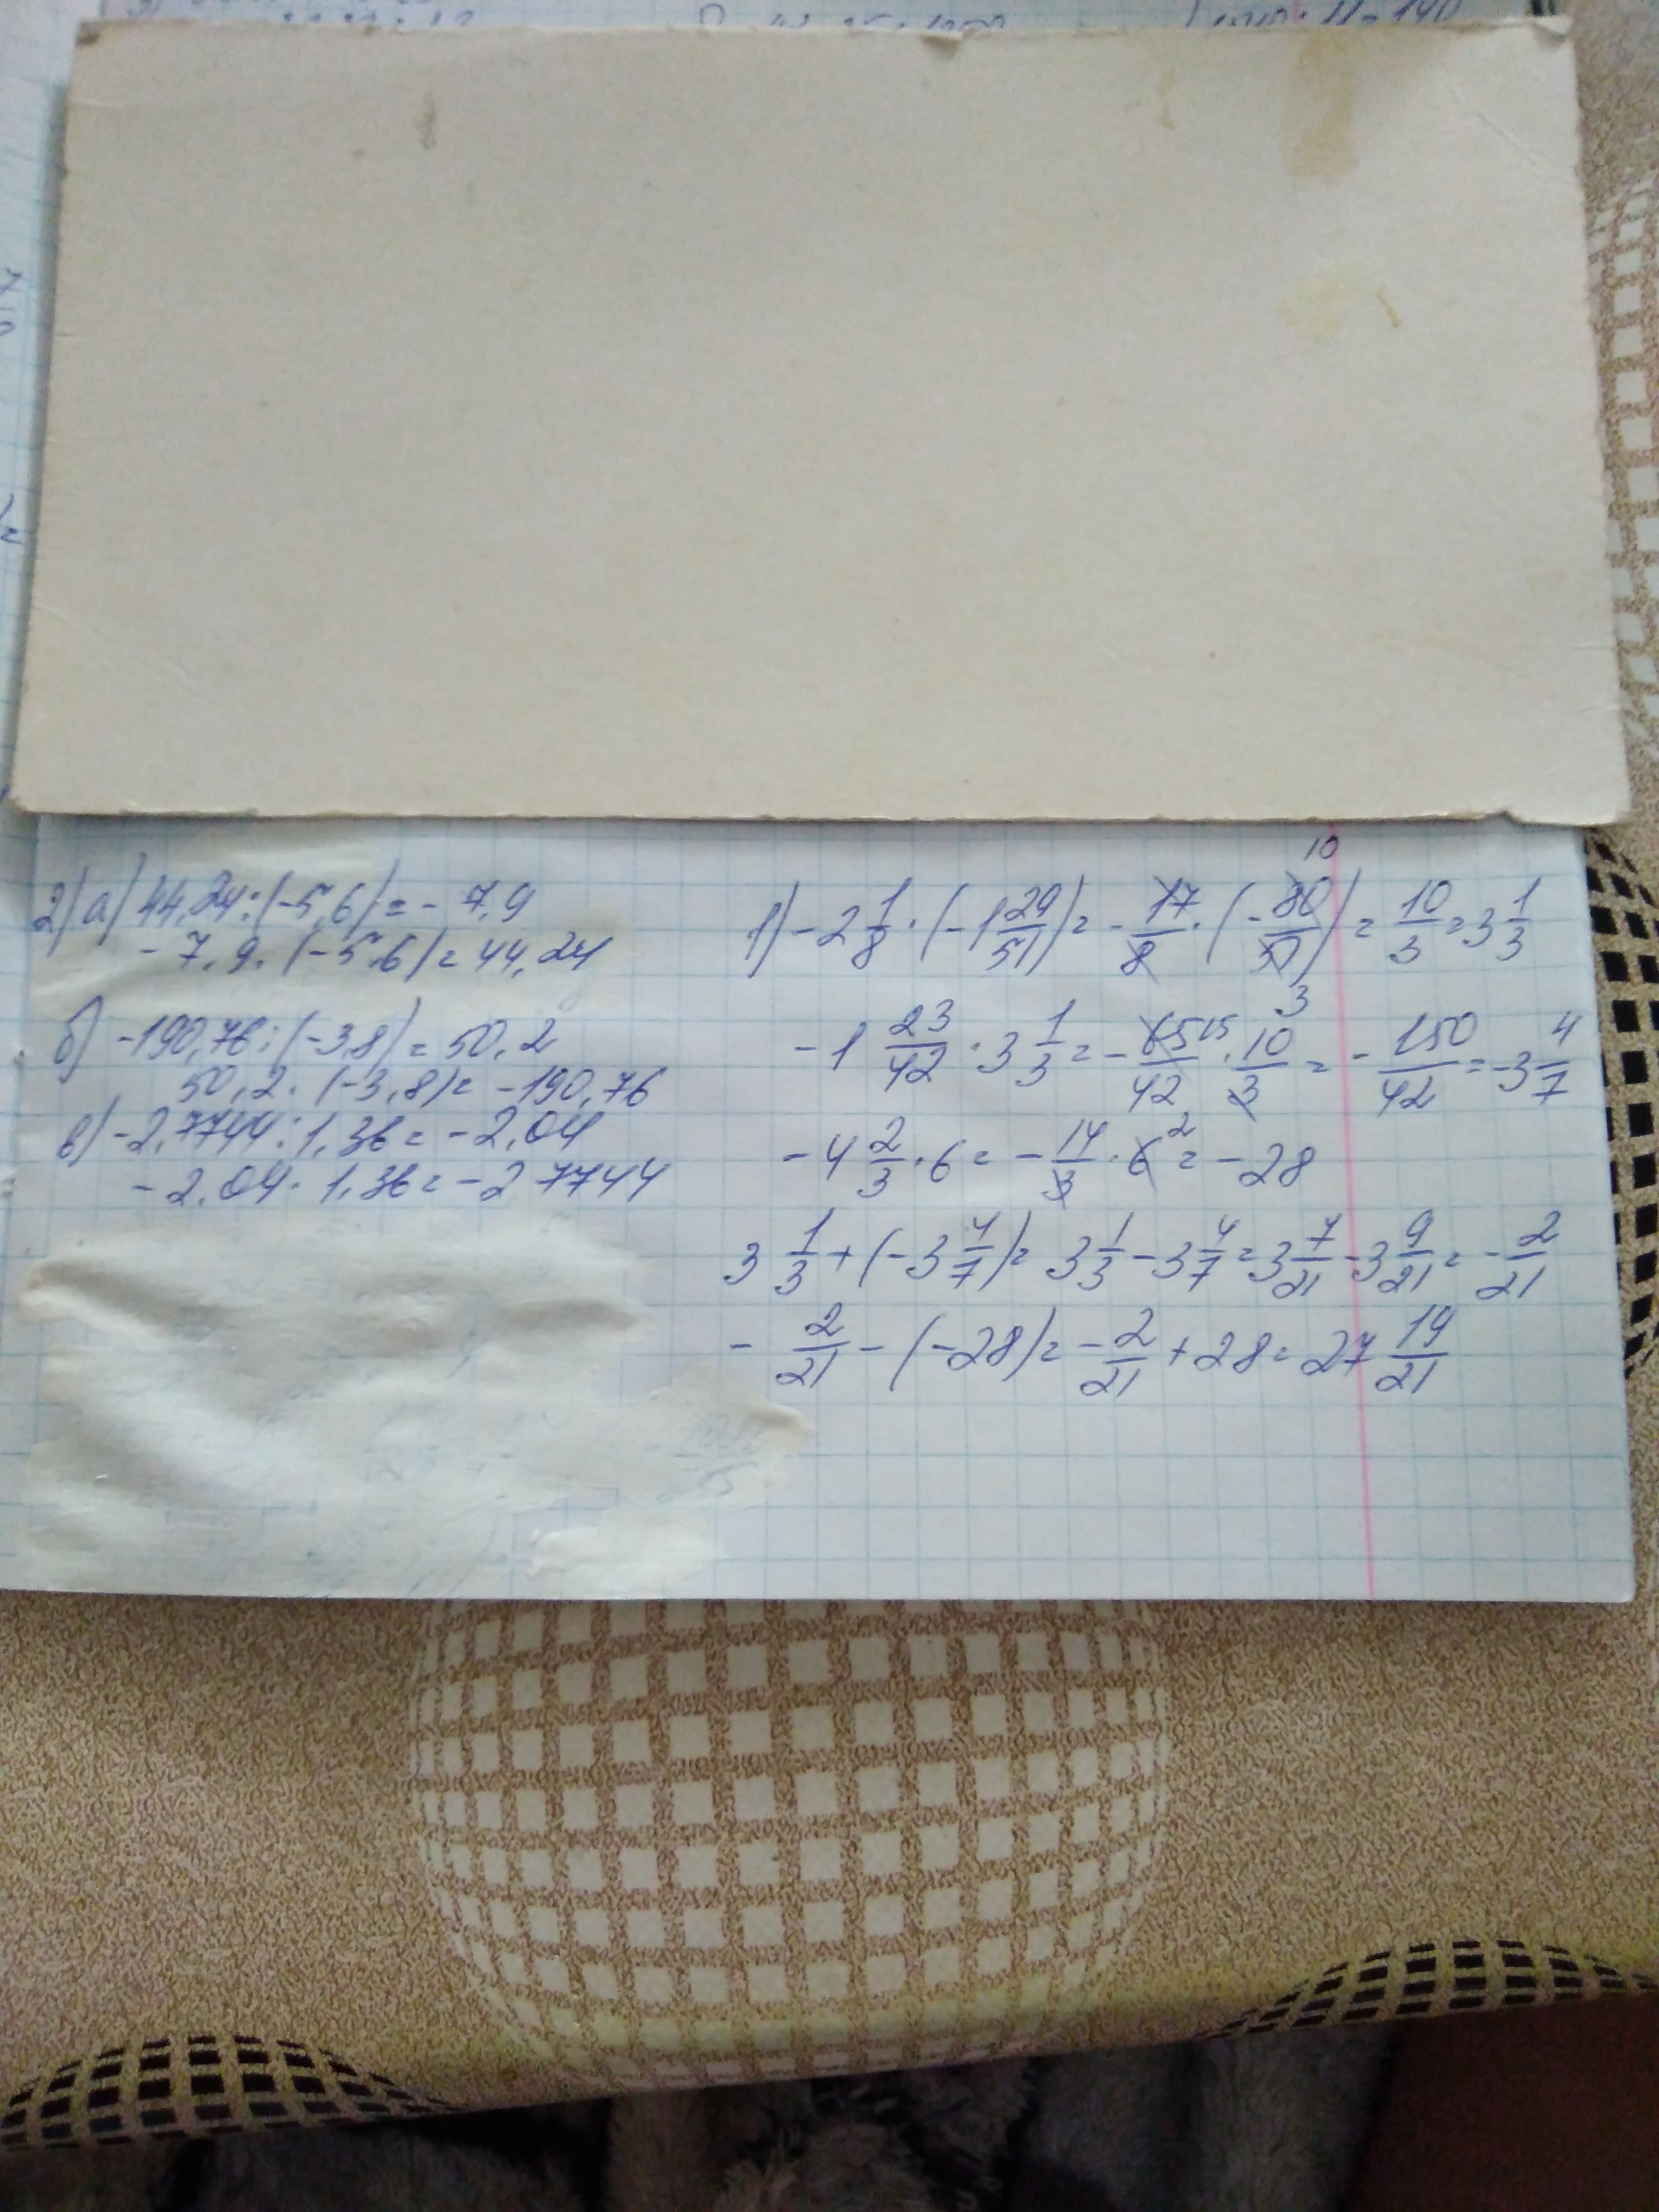 2) а) 44,24:(-5,6)=-7,9
-7,9·(-5,6)=44,24
б) -190,76:(-3,8)=50,2
50,2·(-3,8)=-190,76
в) -2,7744:1,36=-2,04
-2,04·1,36=-2 7744
1) -2 1/8·(-1 29/51)=-17/8·(-80/51)=10/3=3 1/3
10
3
-1 23/42·3 1/3=-65/42 15·10/3=-150/42=-3 4/7
-4 2/3·6=-14/3·6 2=-28
3 1/3+(-3 4/7)=3 1/3-3 4/7=3 7/21-3 9/21=-2/21
-2/21-(-28)=-2/21+28=27 19/21